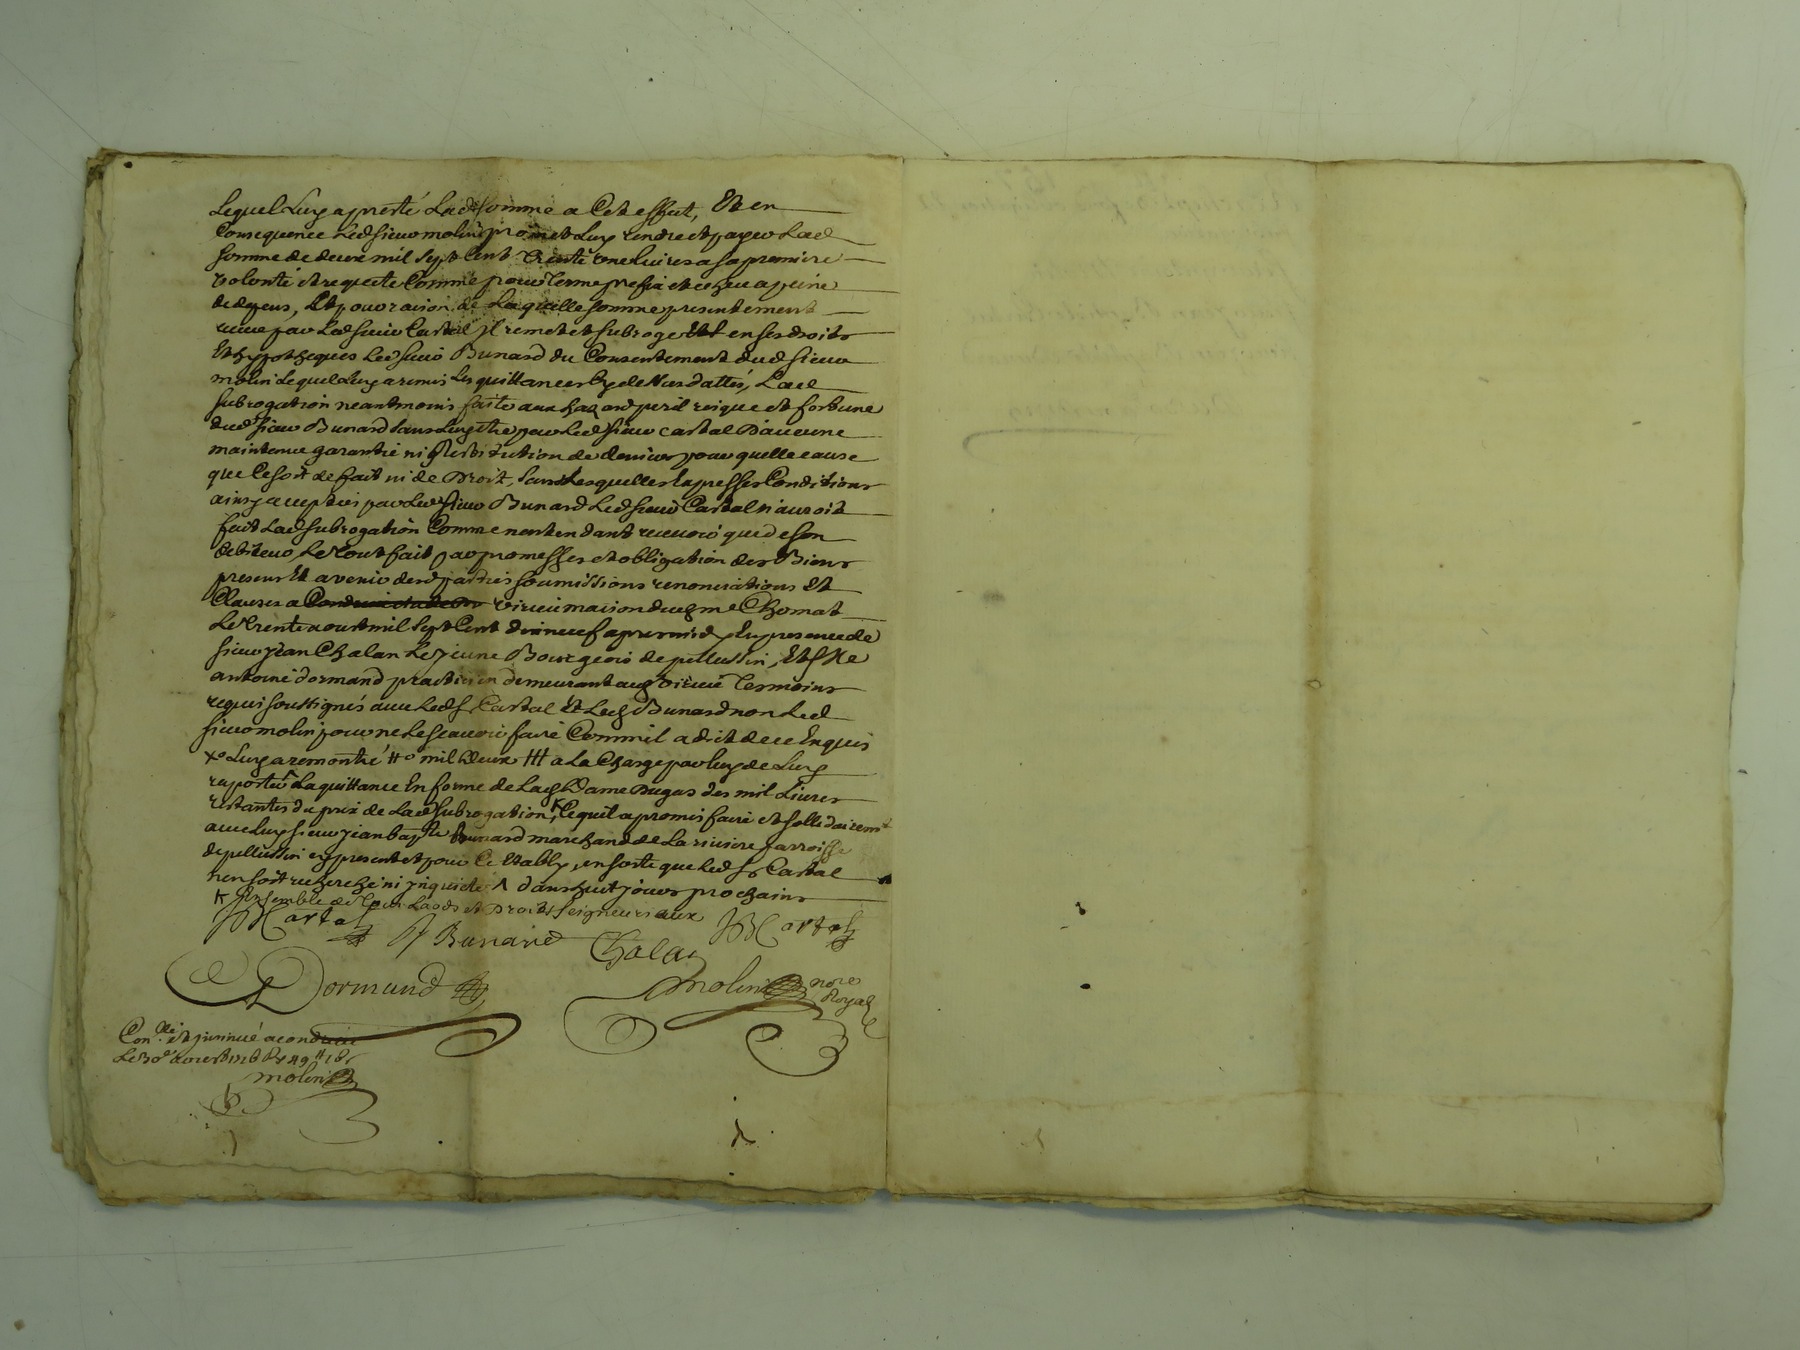 Lequel Luy a presté Lad somme a Cet effect, Et en
Consequence Led sieur molin promet Luy rendre et payer Lad
somme de deux mil sept Cent trente une livres a sa premiere
volonté et requete Comme pour terme prefix et echeu a peine
de depens, Et pour raison de Laquelle somme presentement
receue par Led sieur Cartal Il remet et subroge en ses droits
Et hypotheques Led sieur Bunard du Consentement dud sieur
molin Lequel Luy a remis Les quittances Cy de Nus dattés, Lad
subrogation neantmoins faite aux hazard peril risque et fortune
dud sieur Bunard sans Luy être par Led sieur cartal D'aucune
maintenue garantie ni Restitution de deniers pour quelle cause
que Ce soit de fait ni de Droit, sans Lesquelles Expresses Conditions
ainsy acceptées par Led sieur Bunard Led sieur Cartal n'auroit
fait Lad subrogation Comme n'entendant recevoir que de son
debiteur, Le tout fait par promesses et obligation des Biens
presens Et a venir desd parties soumissions renonciations Et
Clauses a virieu maison dud me Chomat
Le trente aoust mil sept Cent dixneuf apres midy En presence de
sieur jean Chalan Le jeune Bourgeois de pellussin, Et Me
antoine dormand practicien demeurant aud virieu Temoins
requis soussignés avec Led sr Cartal Et Led Bunard non Led
sieur molin pour ne Le scavoir faire Comm'il a dit de ce Enquis
xo Luy a remontré #o mil Deux ### a La Charge par luy de Luy
raporter La quittance En forme de Lad Dame Dugas des mil Livres
restantes du prix de Lad subrogation, Ce quil a promis faire et sollidairemt
avec Luy sieur jean baptte Bunard marchand de La riviere parroisse
de pellussin cy present et pour Ce Etably, en sorte que Led sr Cartal
n'en soit recherché ni inquieté dans huit jours prochains
K Ensemble de Tous Laods et Droits seigneuriaux
JB Cartal Bunard Chalan JB Cartal
Dormand molin nore Royal
Con.llé et insinué a condrieu
Le 30e aoust
molin